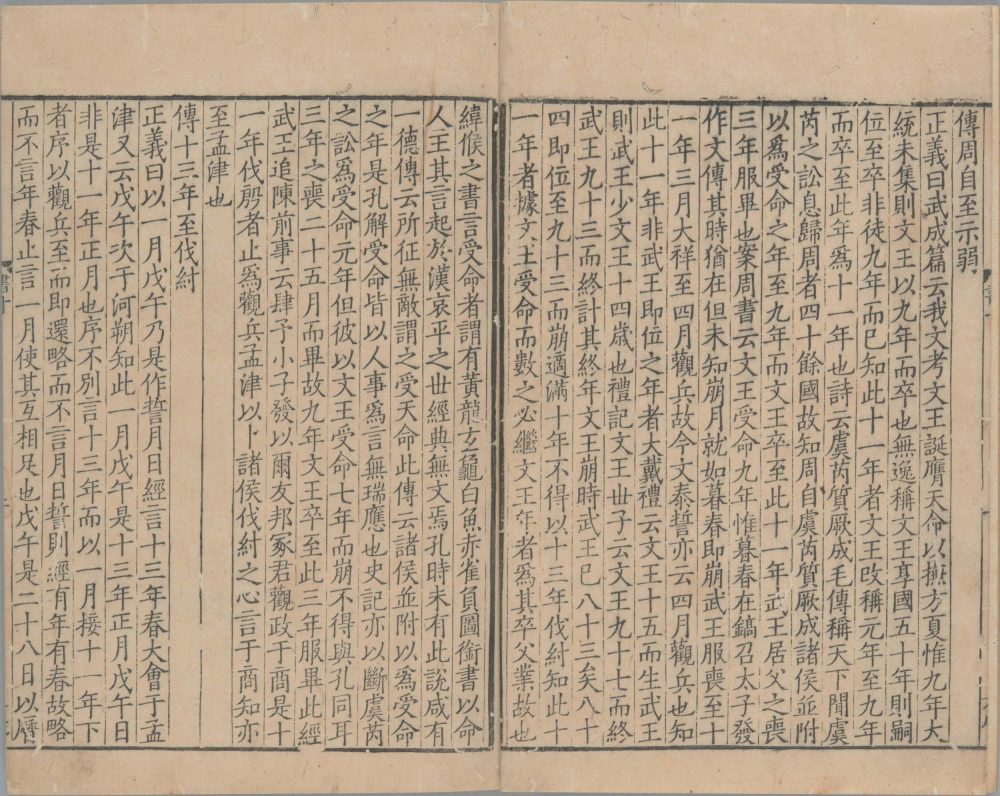 傳周自至示弱
正義曰武成篇云我文考文王誕膺天命以撫方夏惟九年大
統未集則文王以九年而卒也無逸稱文王享國五十年則嗣
位至卒非徒九年而已知此十一年者文王改稱元年至九年
而卒至此年爲十一年也詩云虞芮質厥成毛傳稱天下聞虞
芮之訟息歸周者四十餘國故知周自虞芮質厥成諸侯並附
以爲受命之年至九年而文王卒至此十一年武王居父之喪
三年服畢也案周書云文王受命九年惟暮春在鎬召太子發
作文傳其時猶在但未知崩月就如暮春即崩武王服喪至十
一年三月大祥至四月觀兵故今文泰誓亦云四月觀兵也知
此十一年非武王即位之年者大戴禮云文王十五而生武王
則武王少文王十四歲也禮記文王世子云文王九十七而終
武王九十三而終計其終年文王崩時武王已八十三矣八十
四即位至九十三而崩適滿十年不得以十三年伐紂知此十
一年者據文王受命而數之必繼文王年者爲其卒父業故也
緯候之書言受命者謂有黃龍玄龜白魚赤雀負圖銜書以命
人主其言起於漢哀平之世經典無文焉孔時未有此說咸有
一德傳云所征無敵謂之受天命此傳云諸侯並附以爲受命
之年是孔解受命皆以人事爲言無瑞應也史記亦以斷虞芮
之訟爲受命元年但彼以文王受命七年而崩不得與孔同耳
三年之喪二十五月而畢故九年文王卒至此三年服畢此經
武王追陳前事云肆予小子發以爾友邦冢君觀政于商是十
一年伐殷者止爲觀兵孟津以卜諸侯伐紂之心言于商知亦
至孟津也
傳十三年至伐紂
正義曰以一月戊午乃是作誓月日經言十三年春大會于孟
津又云戊午次于河朔知此一月戊午是十三年正月戊午日
非是十一年正月也序不別言十三年而以一月接十一年下
者序以觀兵至而即還略而不言月日誓則經有年有春故略
而不言年春止言一月使其互相足也戊午是二十八日以曆